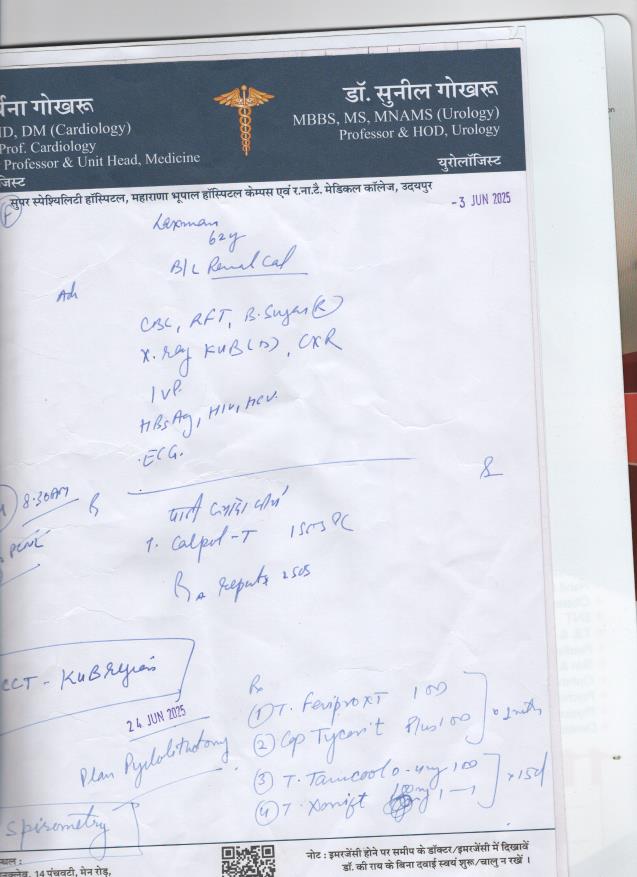 र्चना गोखरू
MD, DM (Cardiology)
Prof. Cardiology
Professor & Unit Head, Medicine
डॉ. सुनील गोखरू
MBBS, MS, MNAMS (Urology)
Professor & HOD, Urology
युरोलॉजिस्ट
सुपर स्पेश्यिलिटी हॉस्पिटल, महाराणा भूपाल हॉस्पिटल केम्पस एवं र.ना.टै. मेडिकल कॉलेज, उदयपुर
- 3 JUN 2025
Laxman
62y
B/L Renal Cal
Adv
CBC, RFT, B. Sugar (R)
X. ray KUB (S), CXR
IVP.
HBsAg, HIV, HCV.
ECG.
8.30AM
पानी ज्यादा पीये
1. Calpol-T 1 SOS
reports
CCT - KUB Region
24 JUN 2025
Plan Pyelolithotomy
Spirometry
Rx
① T. Feriprox T 100
② Cap Tycorit Plus 100
③ T. Tamcool 0.4mg 100
④ T.
x 15d
नोट : इमरजेंसी होने पर समीप के डॉक्टर/इमरजेंसी में दिखावें
डॉ. की राय के बिना दवाई स्वयं शुरू/चालु न रखें ।
14 पंचवटी, मेन रोड,